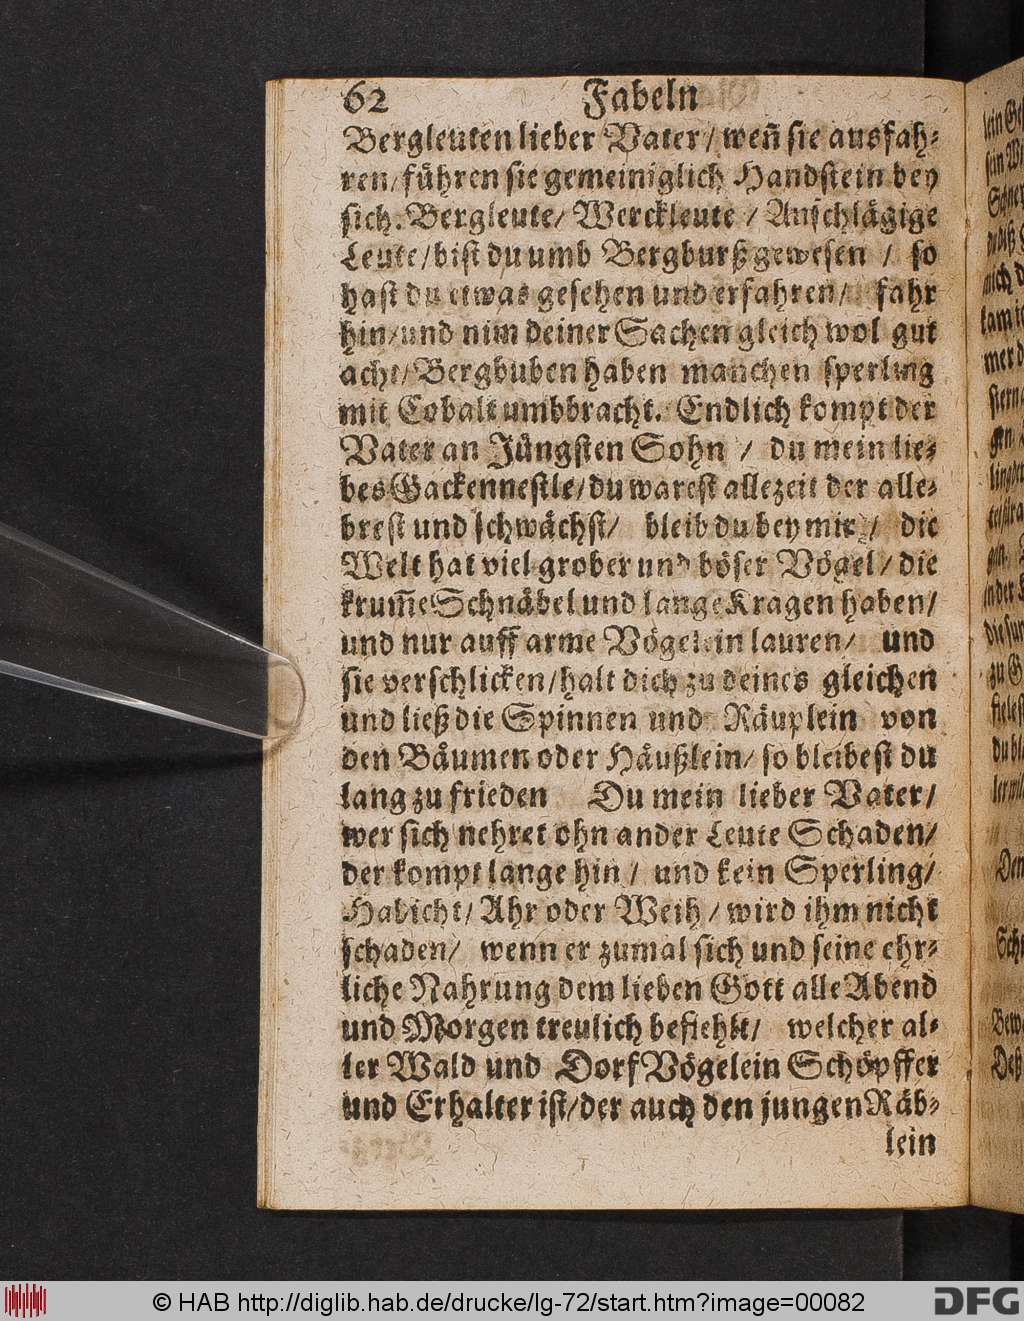 62 Fabeln
Bergleuten lieber Vater / weñ sie ausfah-
ren / führen sie gemeiniglich Handstein bey
sich. Bergleute / Werckleute / Anschlägige
Leute / bist du umb Bergburß gewesen / so
hast du etwas gesehen und erfahren / fahr
hin / und nim deiner Sachen gleich wol gut
acht / Bergbuben haben manchen sperling
mit Cobalt umbbracht. Endlich kompt der
Vater an Jüngsten Sohn / du mein lie-
bes Gackennestle / du warest allezeit der alle-
brest und schwächst / bleib du bey mir / die
Welt hat viel grober und böser Vögel / die
krum̃e Schnäbel und lange Kragen haben /
und nur auff arme Vögelein lauren / und
sie verschlicken / halt dich zu deines gleichen
und ließ die Spinnen und Räuplein von
den Bäumen oder Häußlein / so bleibest du
lang zu frieden Du mein lieber Vater /
wer sich nehret ohn ander Leute Schaden /
der kompt lange hin / und kein Sperling /
Habicht / Ahr oder Weih / wird ihm nicht
schaden / wenn er zumal sich und seine ehr-
liche Nahrung dem lieben Gott alle Abend
und Morgen treulich befiehlt / welcher al-
ler Wald und Dorf Vögelein Schöpffer
und Erhalter ist / der auch den jungen Räb-
lein
© HAB http://diglib.hab.de/drucke/lg-72/start.htm?image=00082
DFG